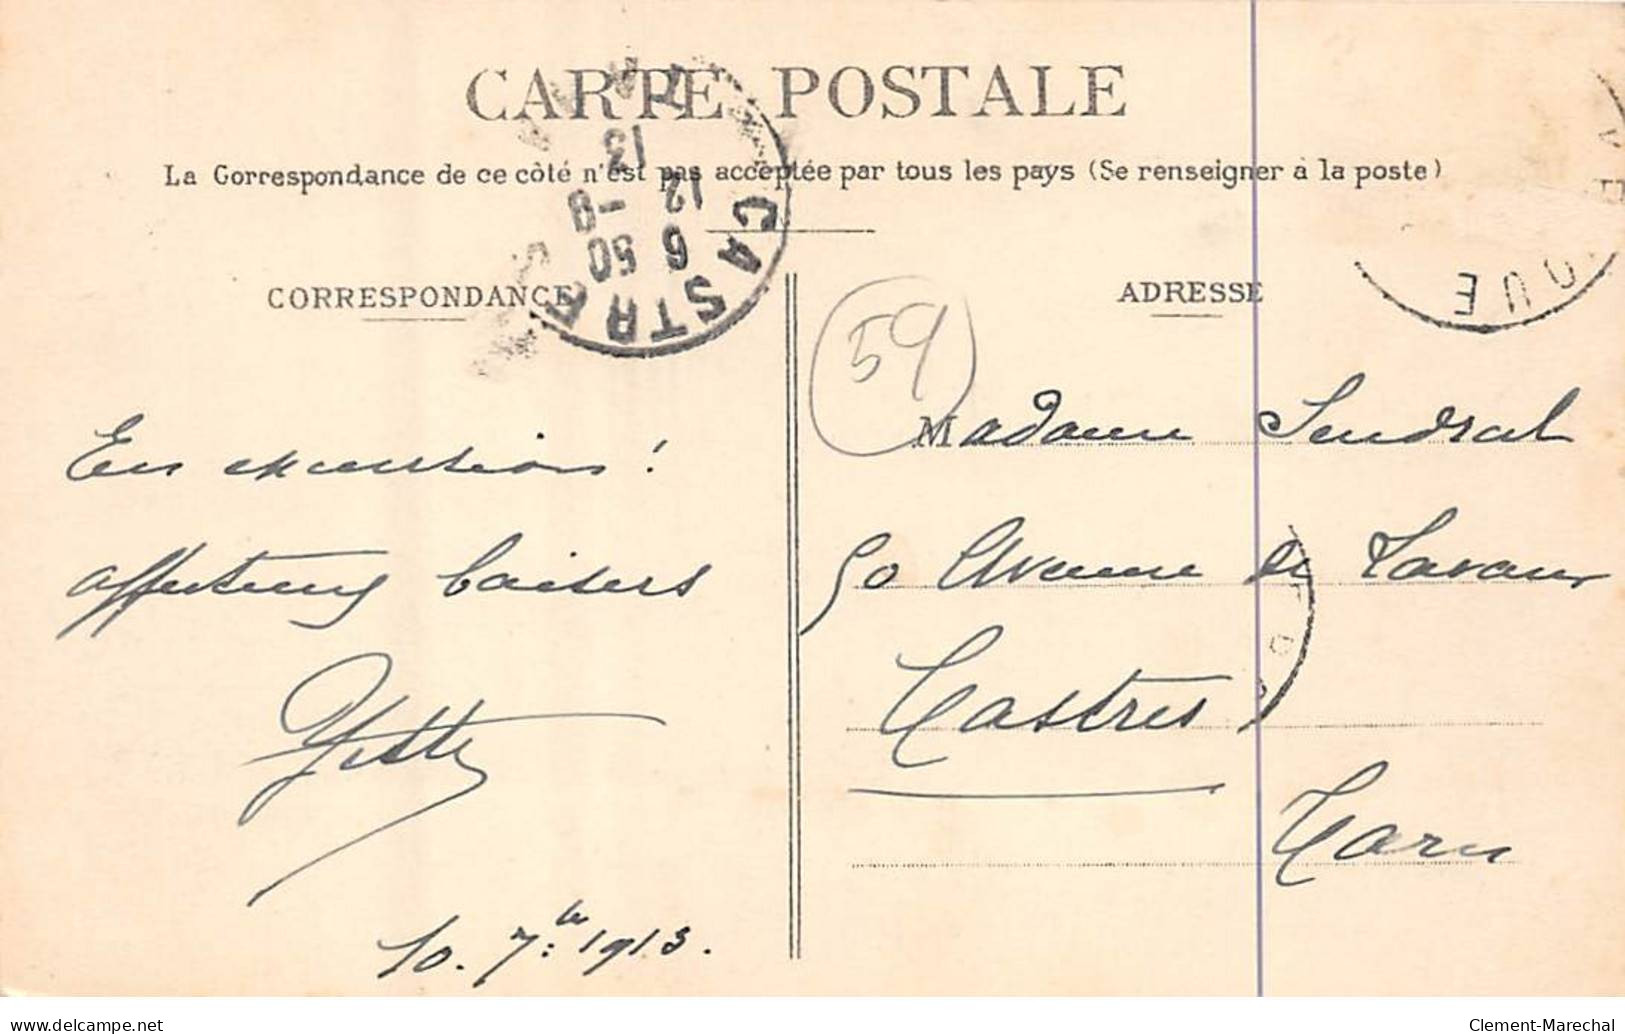 CARTE POSTALE
La Correspondance de ce côté n'est pas acceptée par tous les pays (Se renseigner à la poste)
CASTRES
6 50
12 -9
13
CORRESPONDANCE
ADRESSE
QUE
59
En excursion !
affectueux baisers
Yette
10. 7bre 1913.
Madame Sendral
50 Avenue de Lavaur
Castres
Tarn
delcampe.net
Clement-Marechal